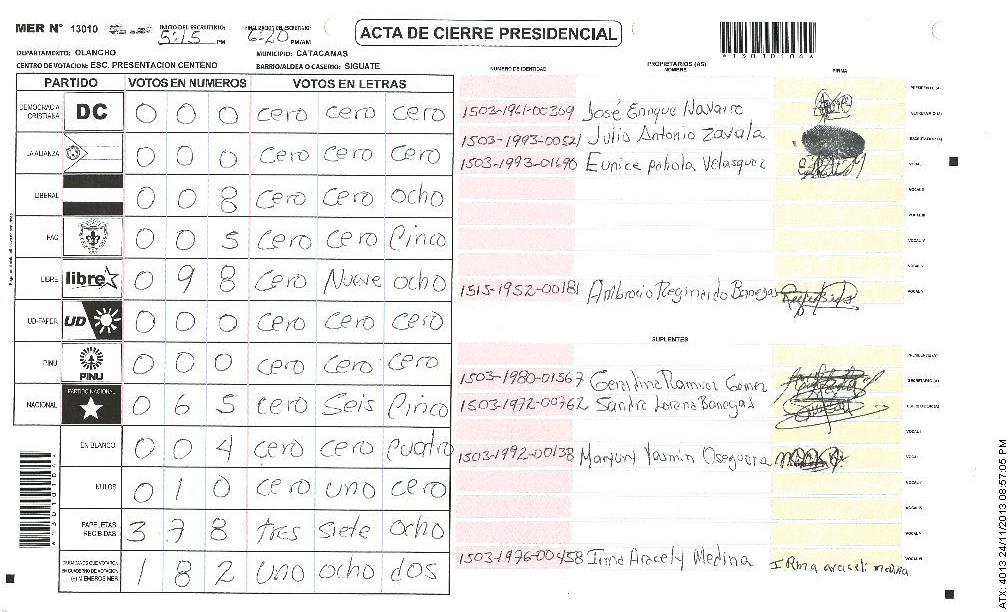 MER N° 13010 INICIO DEL ESCRUTINIO: 5:15 PM FINALIZACION DEL ESCRUTINIO: 6:20 PM/AM
ACTA DE CIERRE PRESIDENCIAL
DEPARTAMENTO: OLANCHO MUNICIPIO: CATACAMAS
CENTRO DE VOTACION: ESC. PRESENTACION CENTENO BARRIO/ALDEA O CASERIO: SIGUATE
PARTIDO VOTOS EN NUMEROS VOTOS EN LETRAS
DEMOCRACIA CRISTIANA DC 0 0 0 cero cero cero
LA ALIANZA 0 0 0 cero cero cero
LIBERAL 0 0 8 cero cero ocho
PAC 0 0 5 cero cero Cinco
LIBRE libre 0 9 8 cero Nueve ocho
UD-FAPER UD 0 0 0 cero cero cero
PINU PINU 0 0 0 cero cero cero
NACIONAL PARTIDO NACIONAL 0 6 5 cero Seis Cinco
EN BLANCO 0 0 4 cero cero cuatro
NULOS 0 1 0 cero uno cero
PAPELETAS RECIBIDAS 3 7 8 tres siete ocho
CIUDADANOS QUE VOTARON EN CUADERNO DE VOTACION (+) MIEMBROS MER 1 8 2 uno ocho dos
PROPIETARIOS (AS)
NUMERO DE IDENTIDAD NOMBRE FIRMA
PRESIDENTE (A)
1503-1961-00309 José Enrique Navarro SECRETARIO (A)
1503-1993-00521 Julio Antonio Zavala ESCRUTADOR (A)
1503-1993-01690 Eunice pahola Velasquez VOCAL I
VOCAL II
VOCAL III
VOCAL IV
VOCAL V
1515-1952-00181 Ambrocio Reginaldo Banegas
SUPLENTES
PRESIDENTE (A)
1503-1980-01567 Ramirez Gomez SECRETARIO (A)
1503-1972-00762 Sandra Lorena Banegas ESCRUTADOR (A)
VOCAL I
1503-1992-00138 Maryury Yasmin Oseguera
1503-1976-00458 Irma Aracely Medina IRma araceli medina
ATX: 4013 24/11/2013 08:57:05 PM